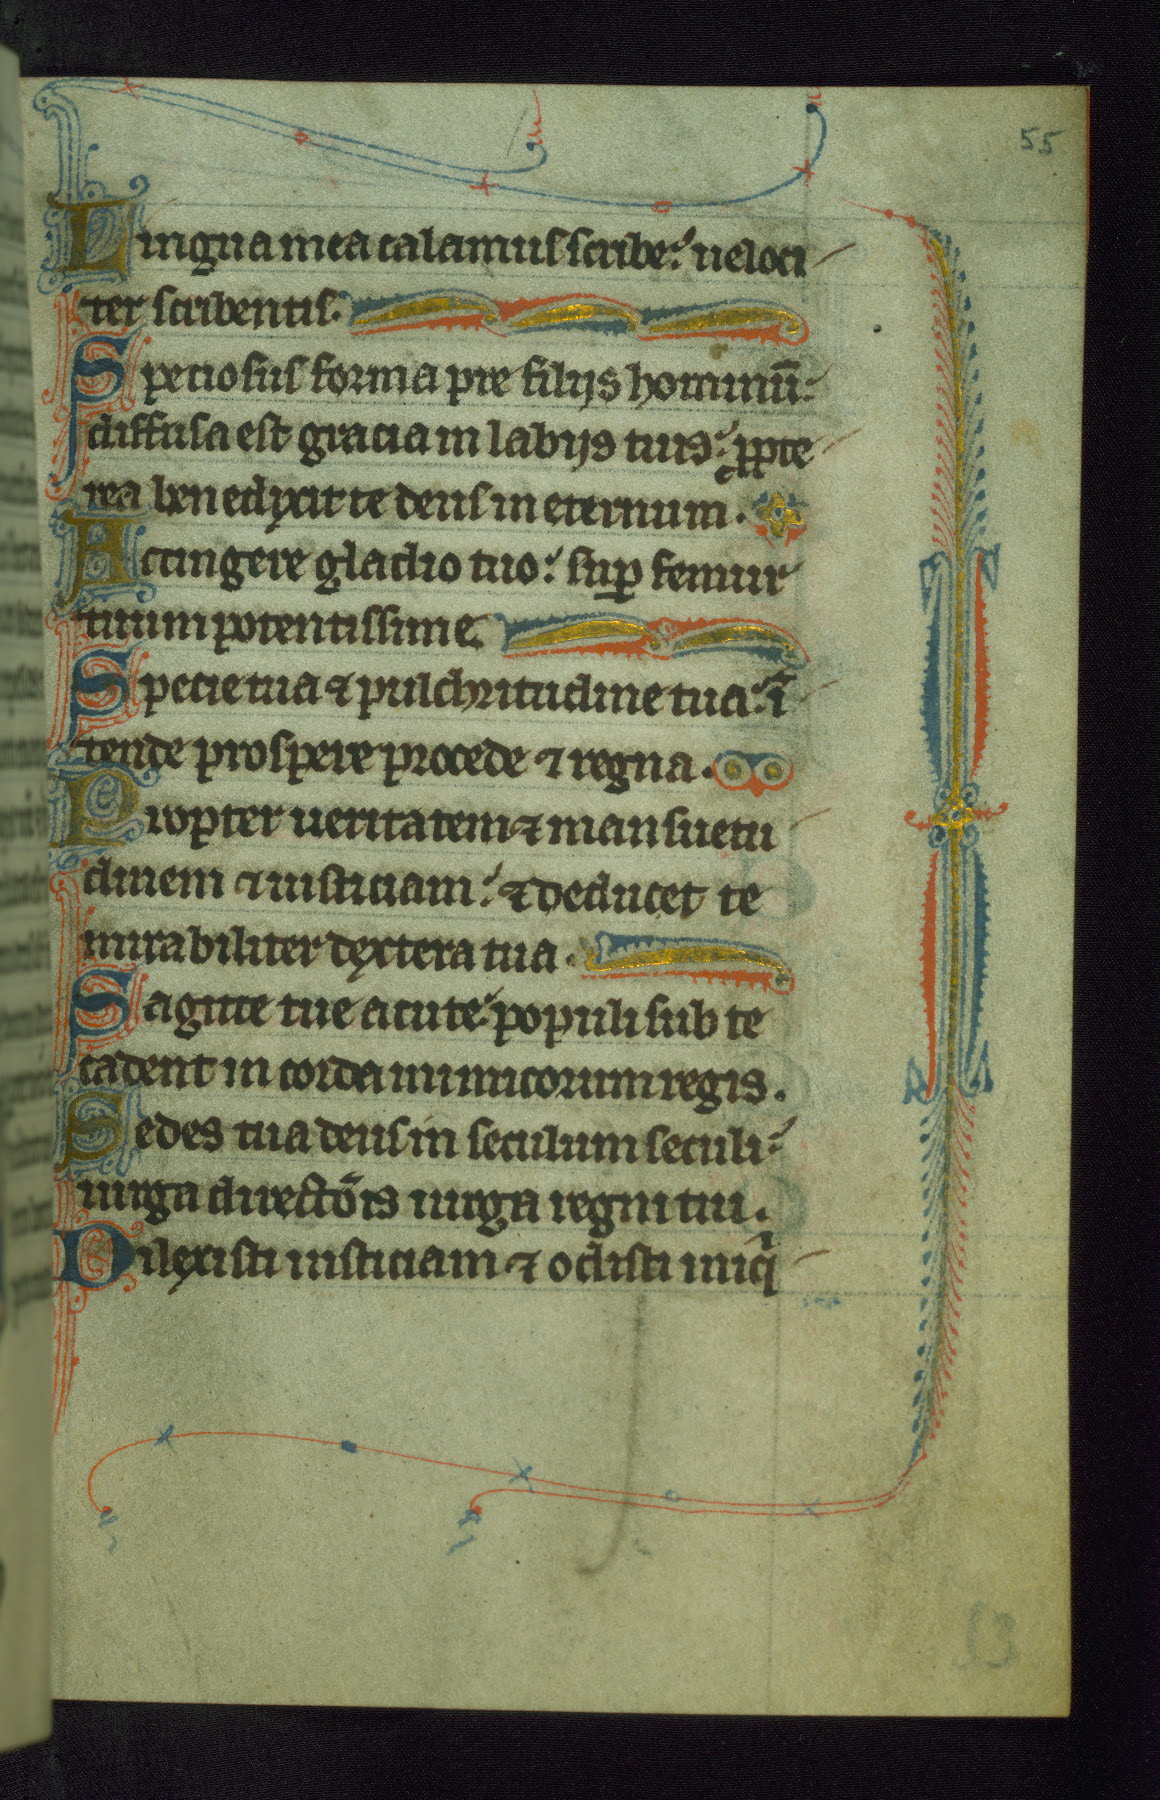 55
Lingua mea calamus scribe: ueloci
ter scribentis.
Speciosus forma pre filijs hominū:
diffusa est gracia in labijs tuis: ꝓpte
rea benedixit te deus in eternum.
Accingere gladio tuo: suꝑ femur
tuum potentissime.
Specie tua ⁊ pulchritudine tua: ī
tende prospere procede ⁊ regna.
Propter ueritatem ⁊ mansuetu
dinem ⁊ iusticiam: ⁊ deducet te
mirabiliter dextera tua.
Sagitte tue acute: populi sub te
cadent in corda inimicorum regis.
Sedes tua deus in seculum seculi:
uirga directōis uirga regni tui.
Dilexisti iusticiam ⁊ odisti iniq̇
53